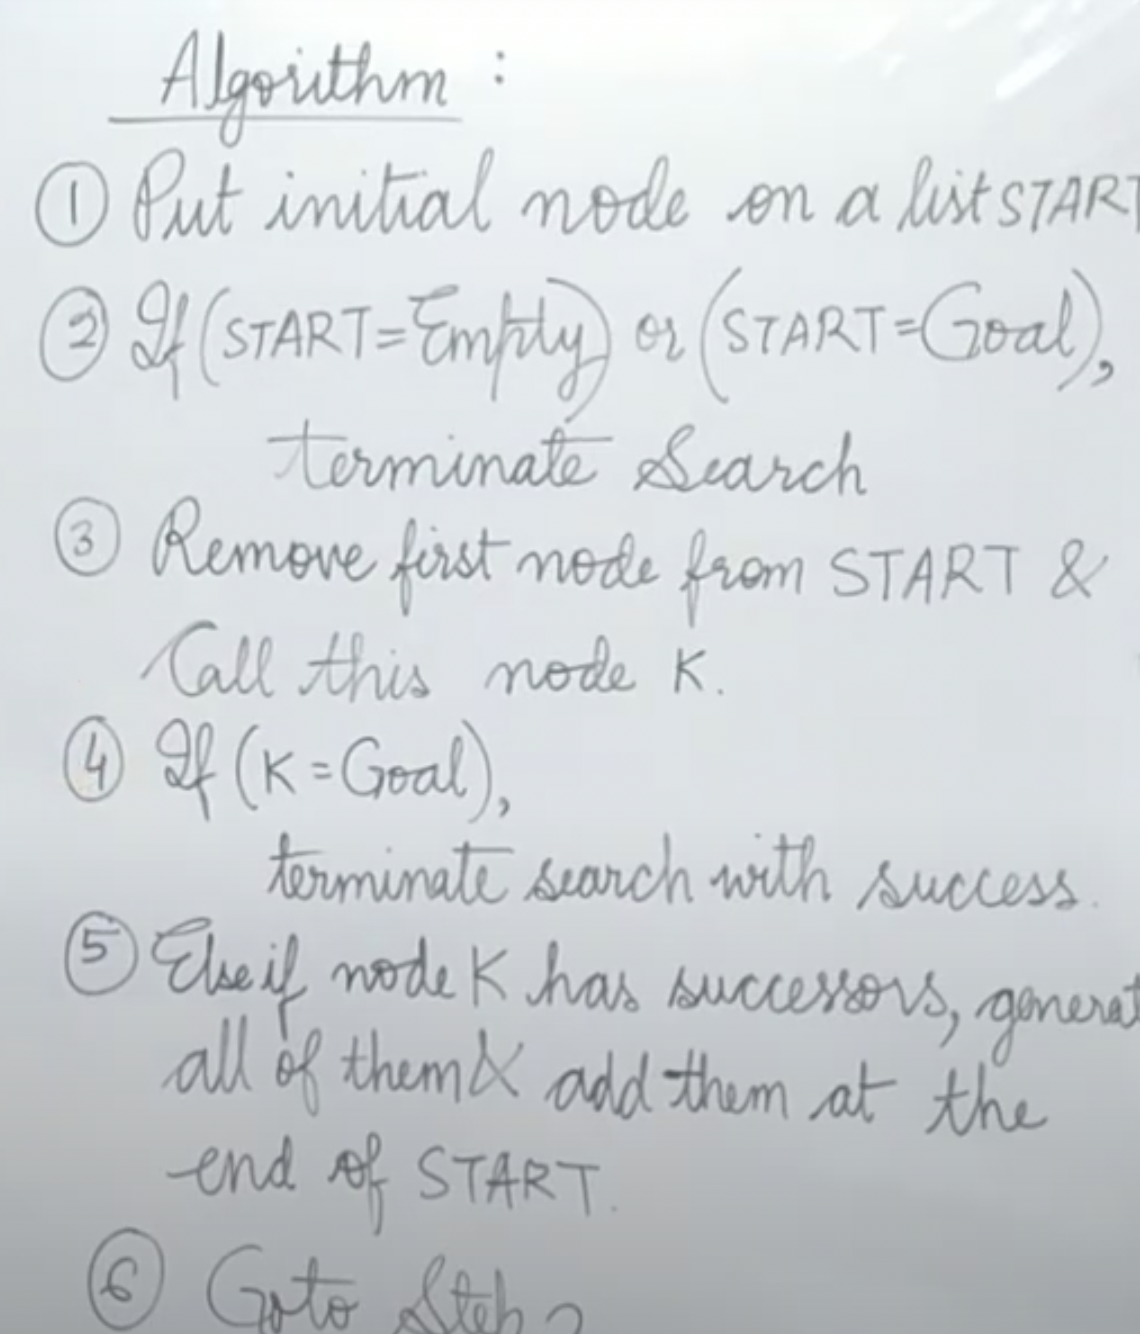 Algorithm :
① Put initial node on a list START
② If (START=Empty) or (START=Goal),
terminate Search
③ Remove first node from START &
Call this node K.
④ If (K=Goal),
terminate search with success.
⑤ Else if node K has successors, generat
all of them & add them at the
end of START.
⑥ Goto Step 2